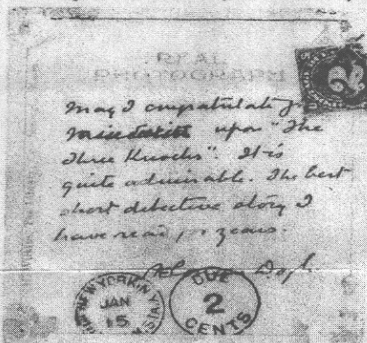 REAL
PHOTOGRAPH
May I congratulate you
upon "The
Three Knocks". It is
quite admirable. The best
short detective story I
have read for years.
A Conan Doyle
NEW YORK, N.Y.
JAN
15
DUE
2
CENTS
2